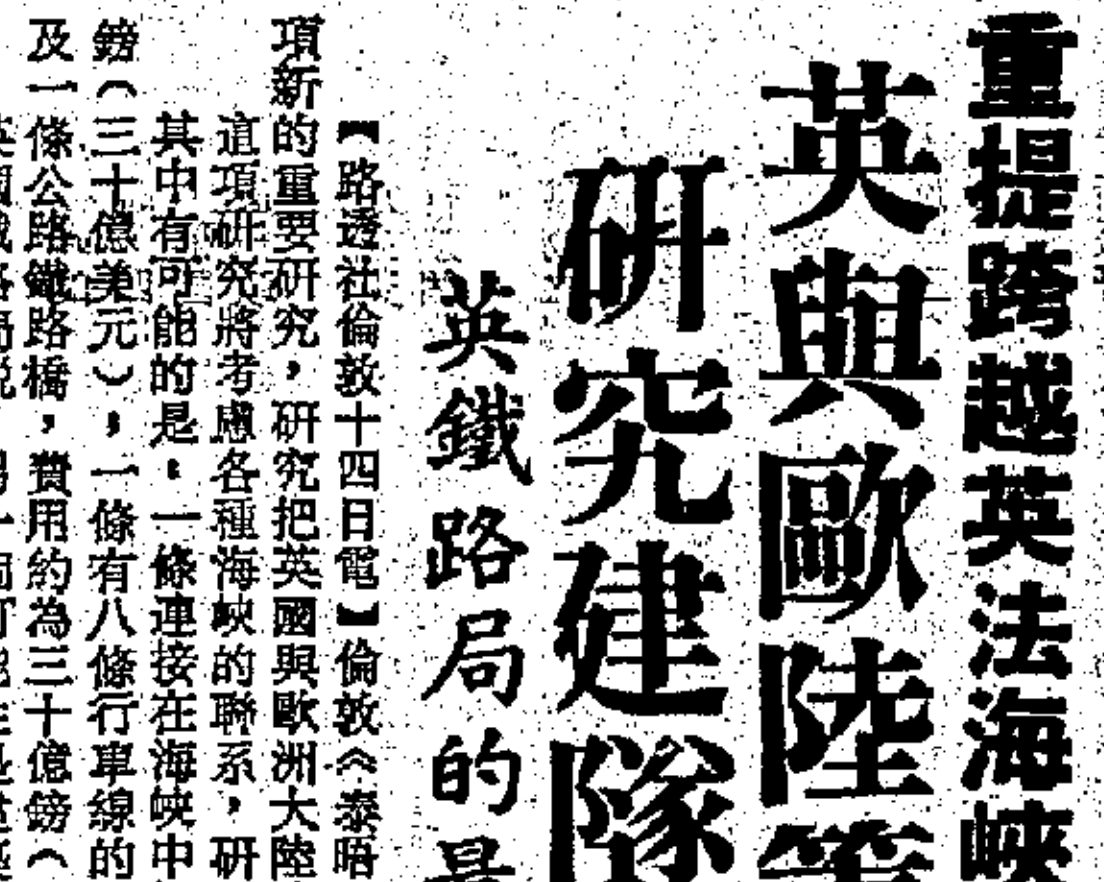 重提跨越英法海峽
英與歐陸等
研究建隊
英鐵路局的最
【路透社倫敦十四日電】倫敦《泰晤
項新的重要研究，研究把英國與歐洲大陸
這項研究將考慮各種海峽的聯系，研
其中有可能的是：一條連接在海峽中
鎊（三十億美元），一條有八條行車線的
及一條公路鐵路橋，費用約為三十億鎊（